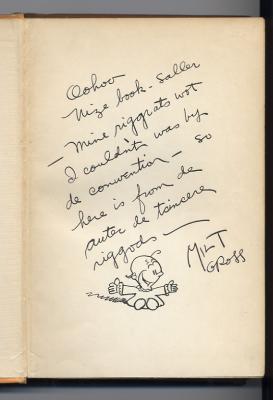 Oohoo
Nize book-saller
— Mine riggrats wot
I couldn't was by
de convention — so
here is from de
auter de tsincere
riggods —
MILT
GROSS